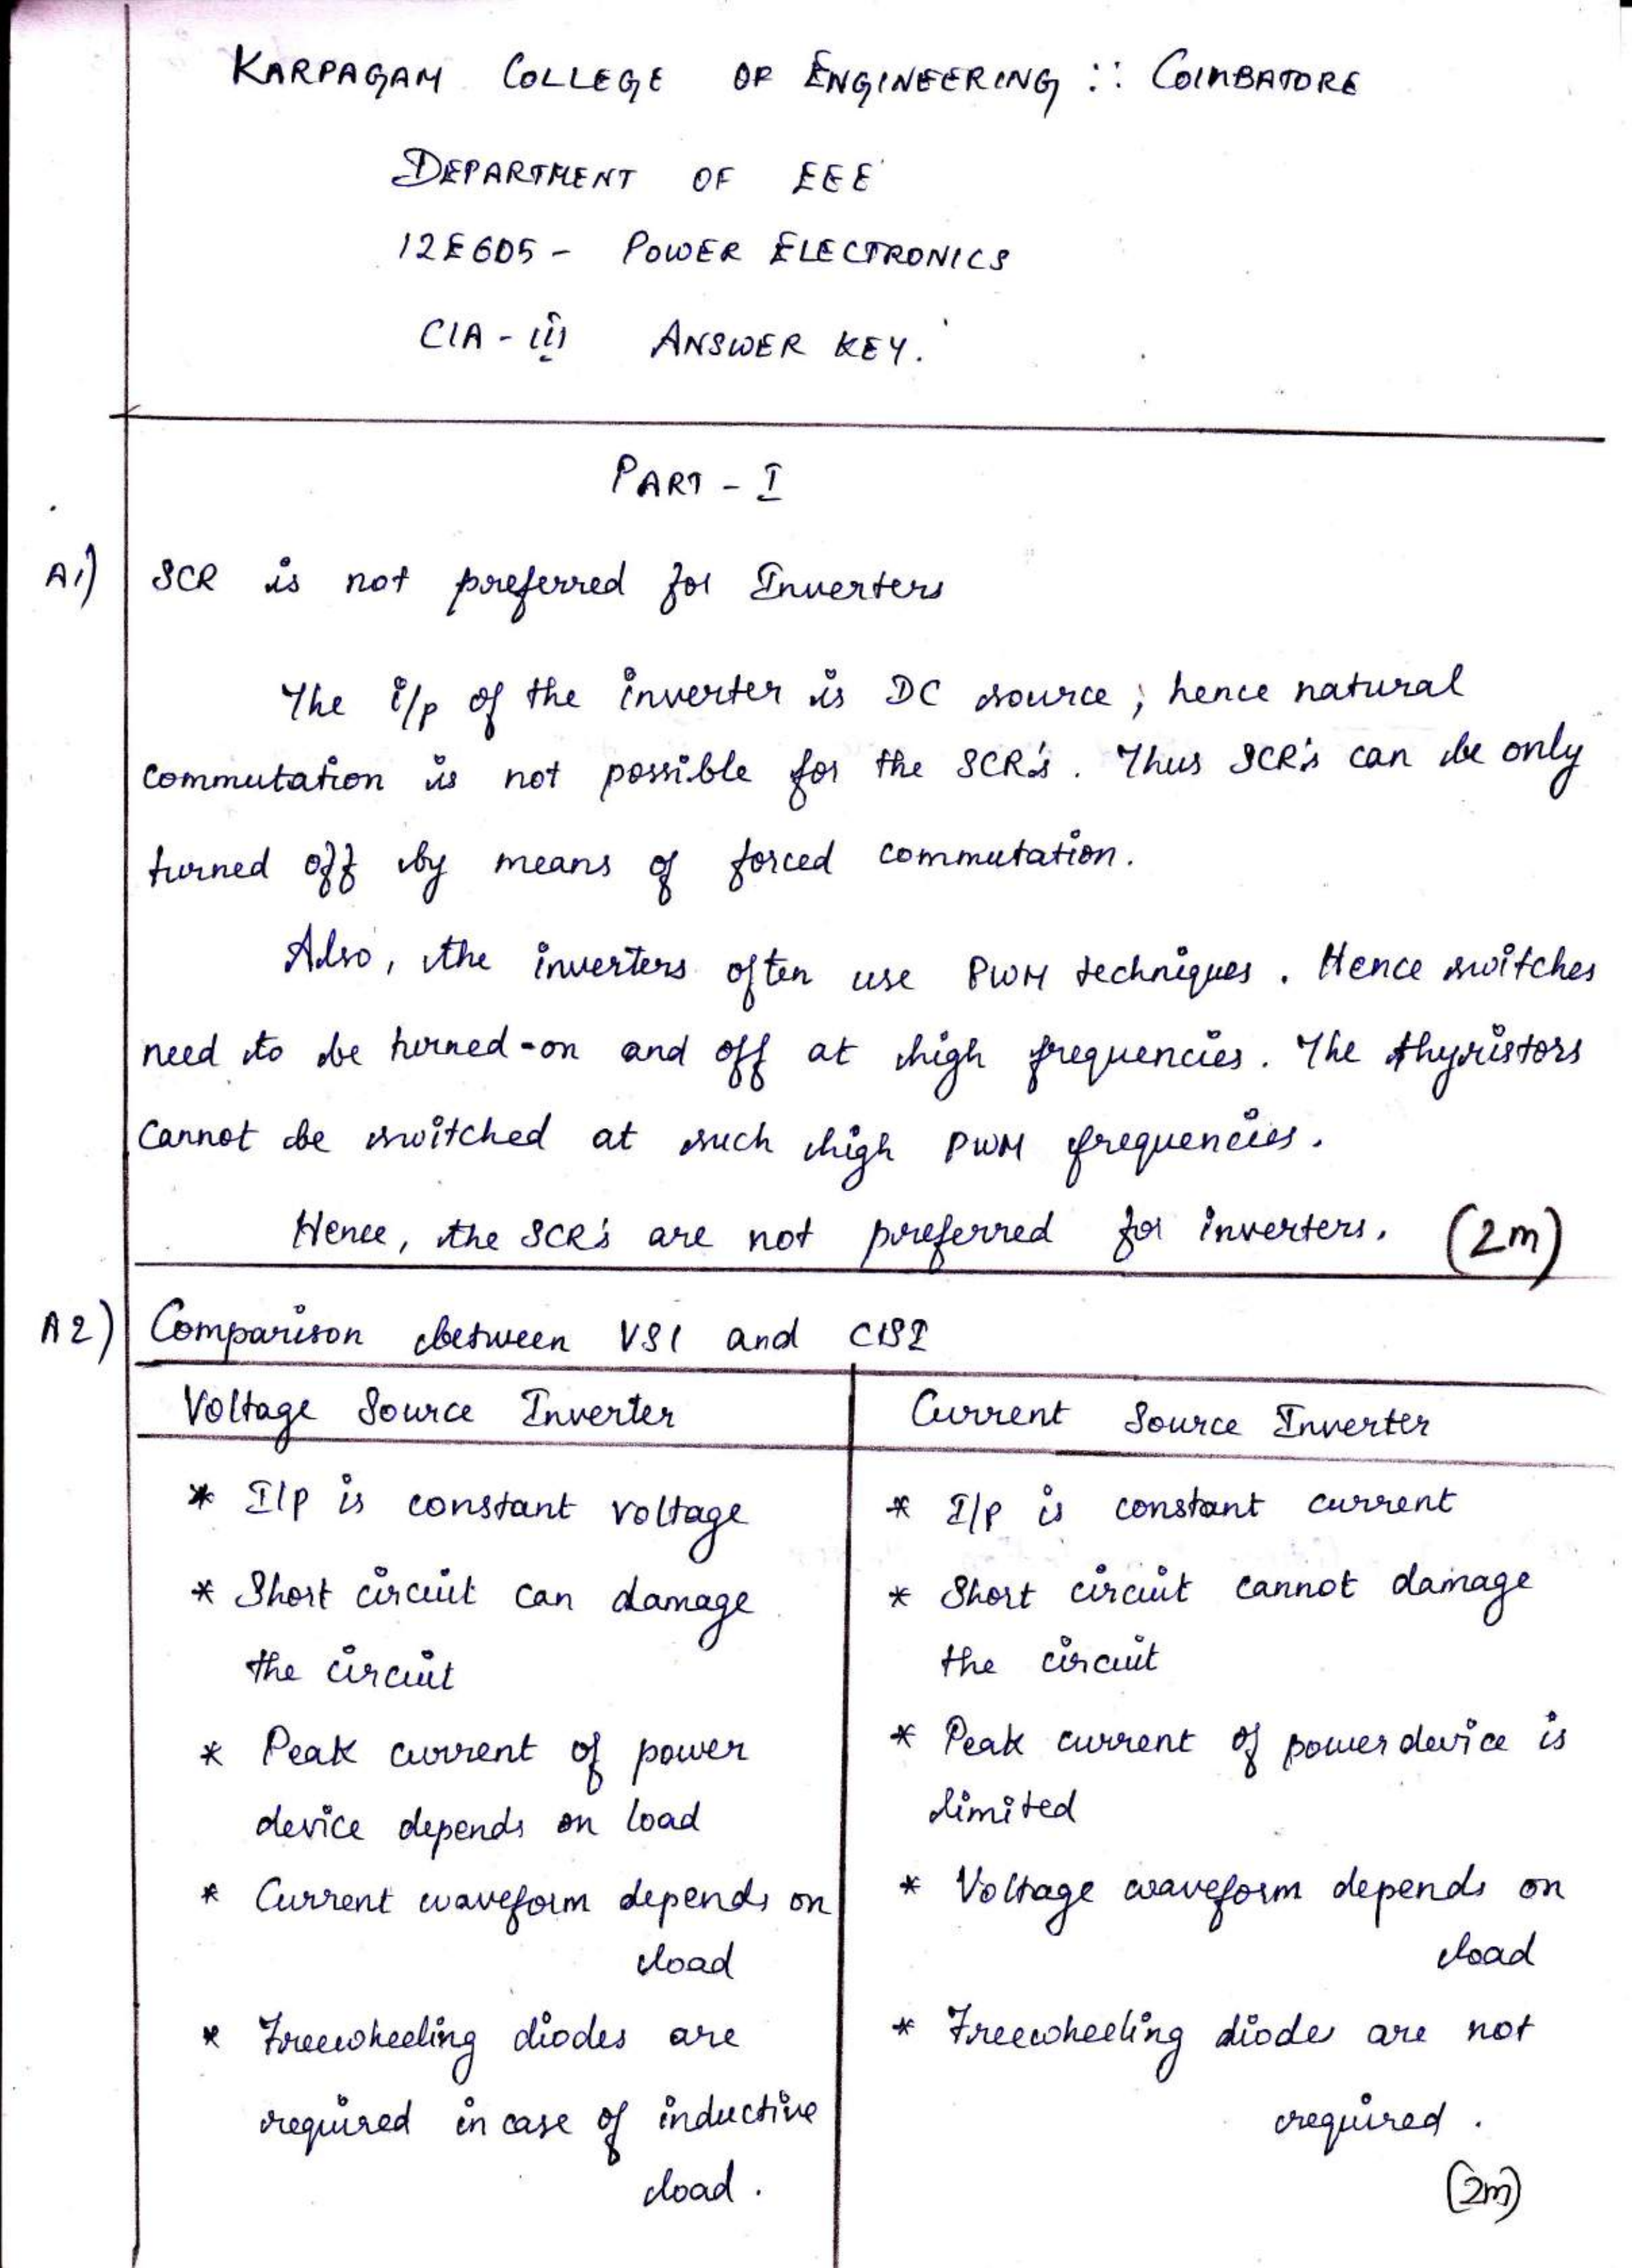 KARPAGAM COLLEGE OF ENGINEERING :: COIMBATORE
DEPARTMENT OF EEE
12E605 - POWER ELECTRONICS
CIA - III ANSWER KEY.
PART - I
A1) SCR is not preferred for Inverters
The i/p of the inverter is DC source; hence natural
commutation is not possible for the SCR's. Thus SCR's can be only
turned off by means of forced commutation.
Also, the inverters often use PWM techniques. Hence switches
need to be turned-on and off at high frequencies. The thyristors
cannot be switched at such high PWM frequencies.
Hence, the SCR's are not preferred for inverters. (2m)
A2) Comparison between VSI and CSI
Voltage Source Inverter | Current Source Inverter
* I/p is constant voltage | * I/p is constant current
* Short circuit can damage | * Short circuit cannot damage
the circuit | the circuit
* Peak current of power | * Peak current of power device is
device depends on load | limited
* Current waveform depends on | * Voltage waveform depends on
load | load
* Freewheeling diodes are | * Freewheeling diodes are not
required in case of inductive | required.
load. | (2m)